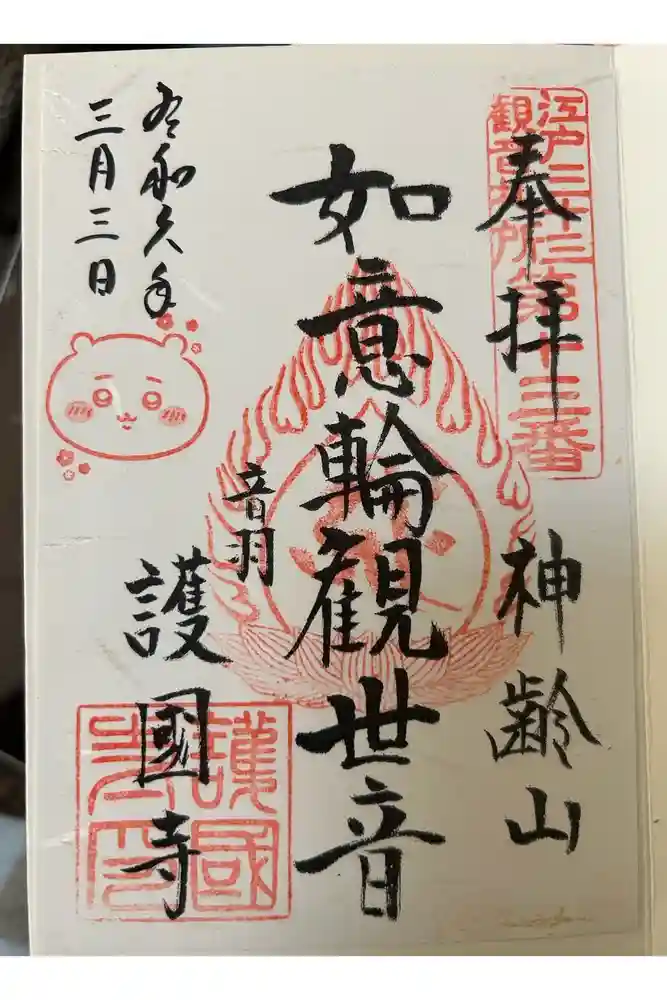 奉拝
江戸三十三
観音札所第十三番
神齢山
如意輪観世音
音羽
護國寺
護國寺印
令和久年
三月三日